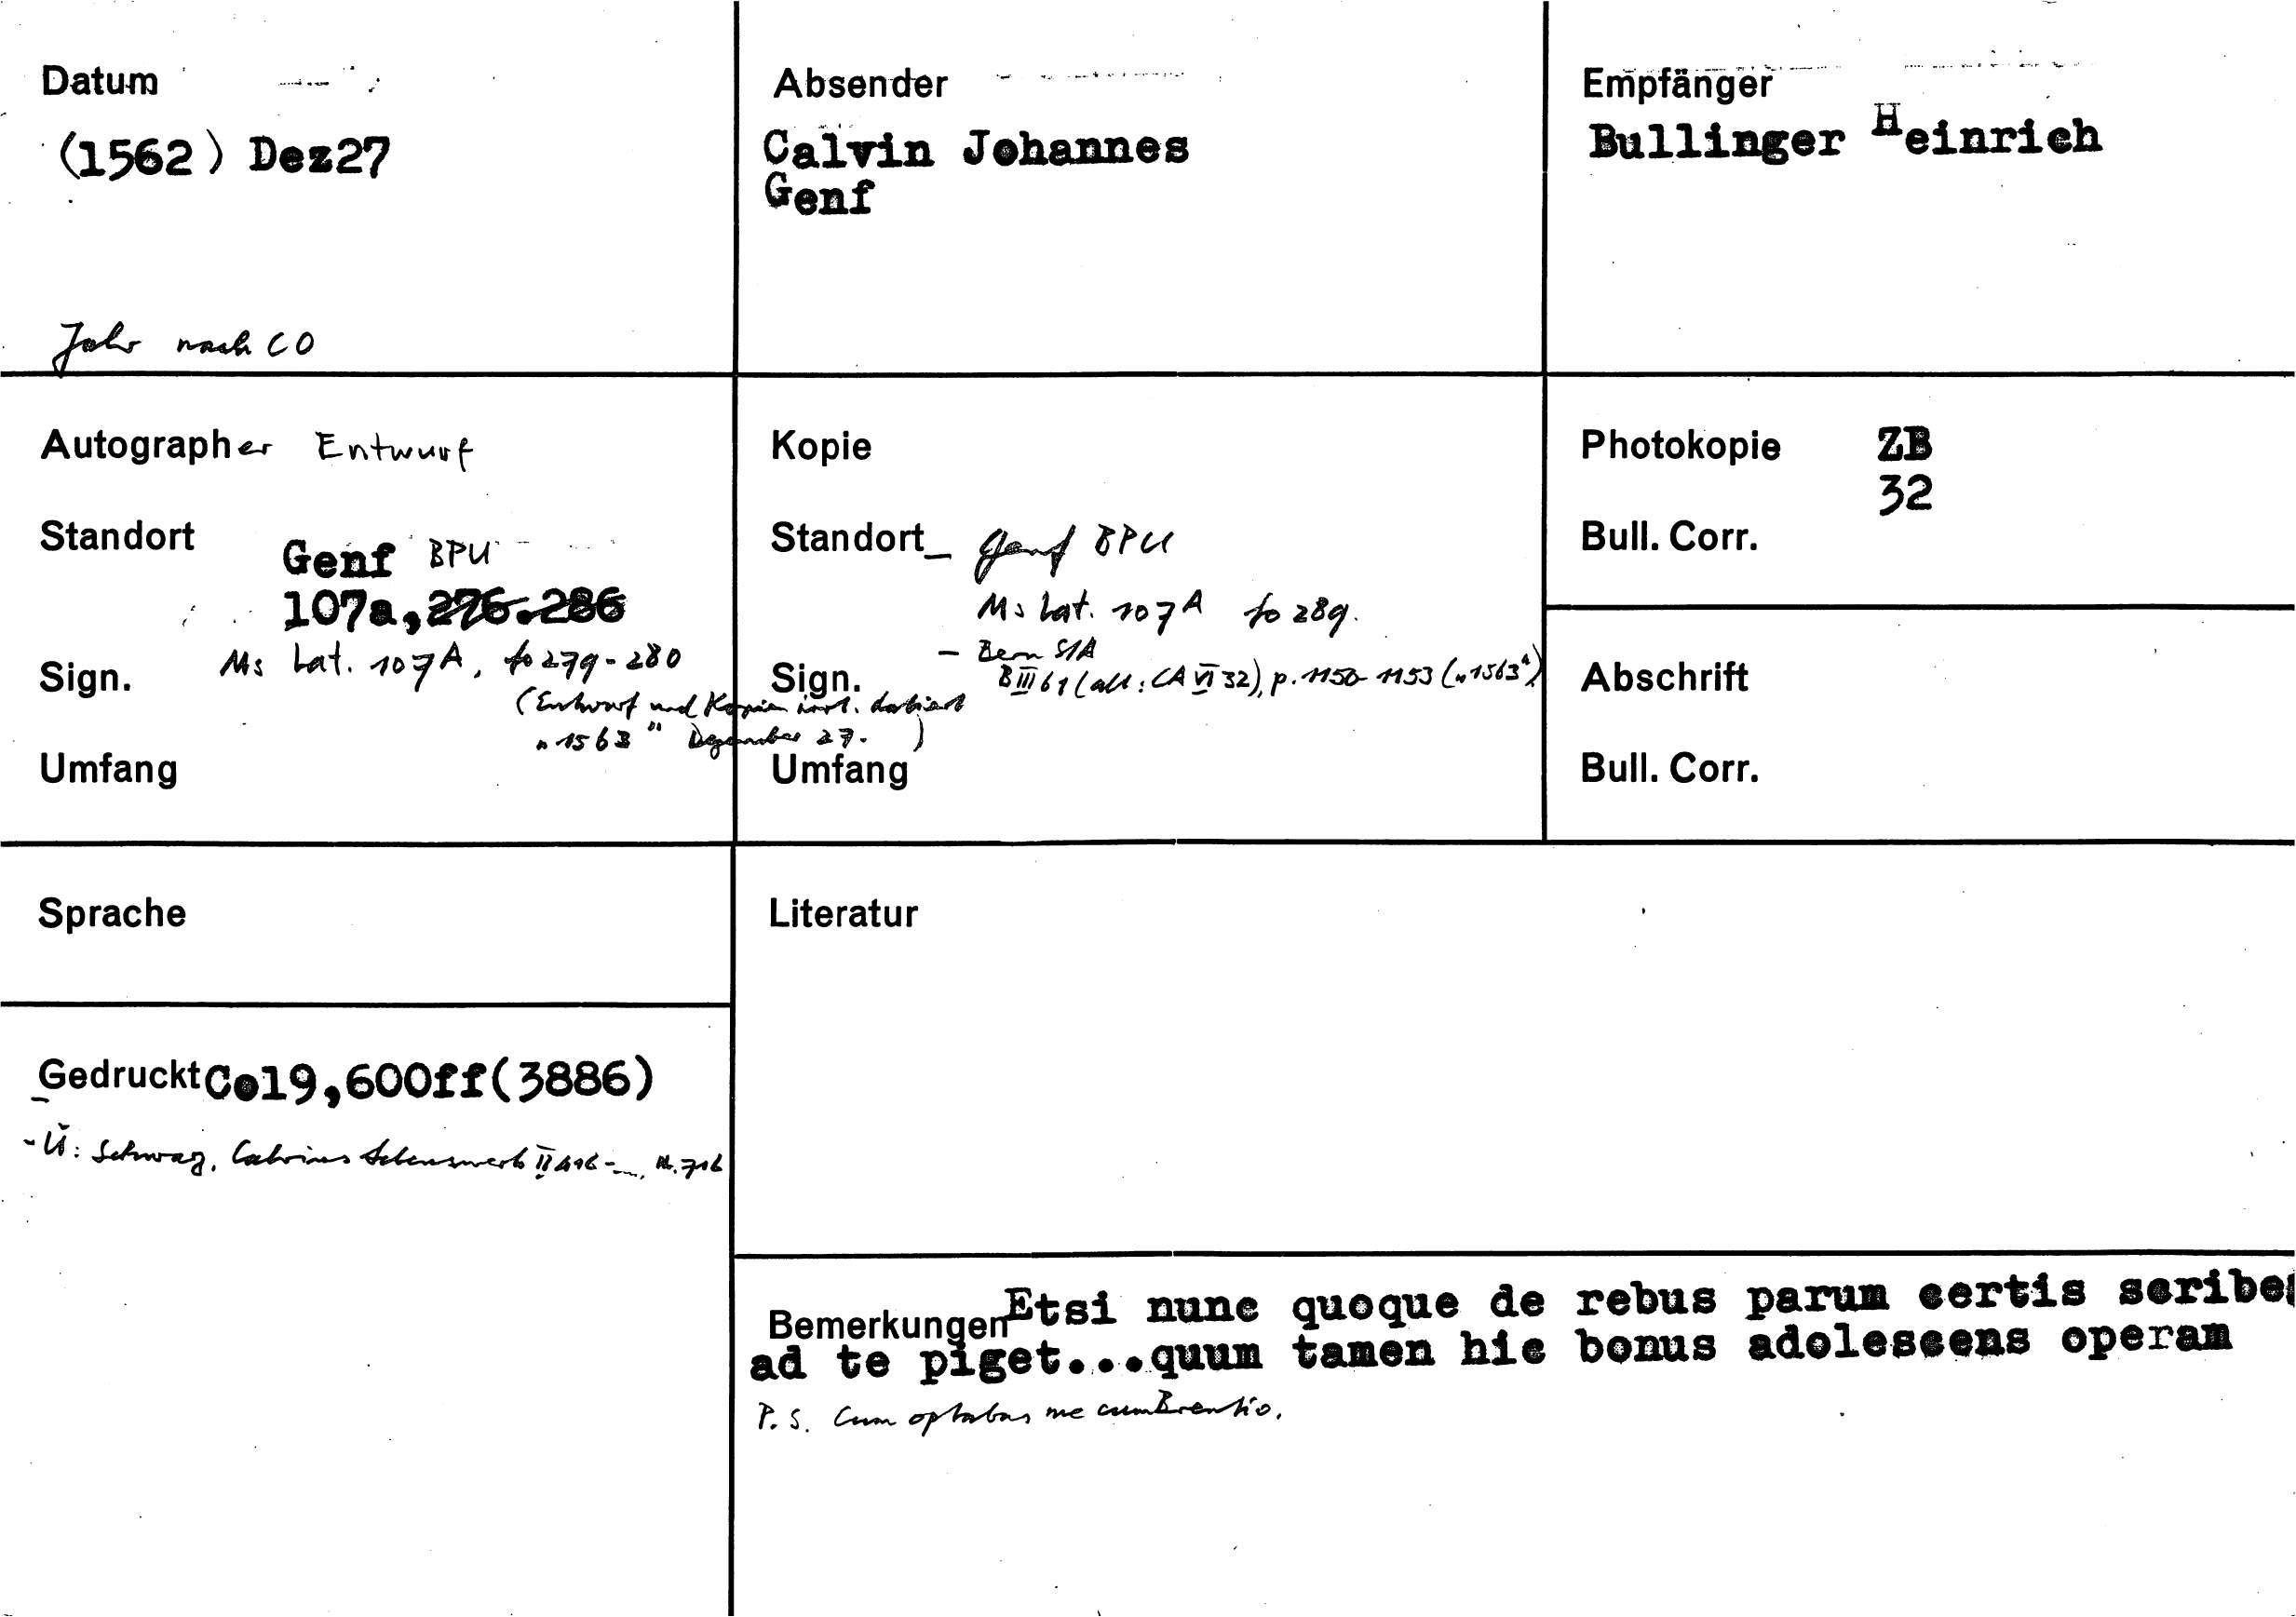 Datum
(1562) Dez27
Jahr nach CO
Absender
Calvin Johannes
Genf
Empfänger
Bullinger Heinrich
Autographer Entwurf
Standort
Genf BPU
107a,276.286
Sign. Ms Lat. 107A, fo 279-280
(Entwurf und Kopien irrt. datiert
„1563" Dezember 27. )
Umfang
Kopie
Standort_ Genf BPU
Ms Lat. 107A fo 289.
- Bern StA
Sign. B III 61 (alt: CA VI 32), p. 1150-1153 („1563")
Umfang
Photokopie ZB
32
Bull. Corr.
Abschrift
Bull. Corr.
Sprache
Gedruckt Co19,600ff(3886)
- Ü: Schwarz, Calvins Lebenswerk II
Literatur
Bemerkungen Etsi nunc quoque de rebus parum certis scribe
ad te piget...quum tamen hic bonus adolescens operam
P.S. Cum optabas me cum Brentio.